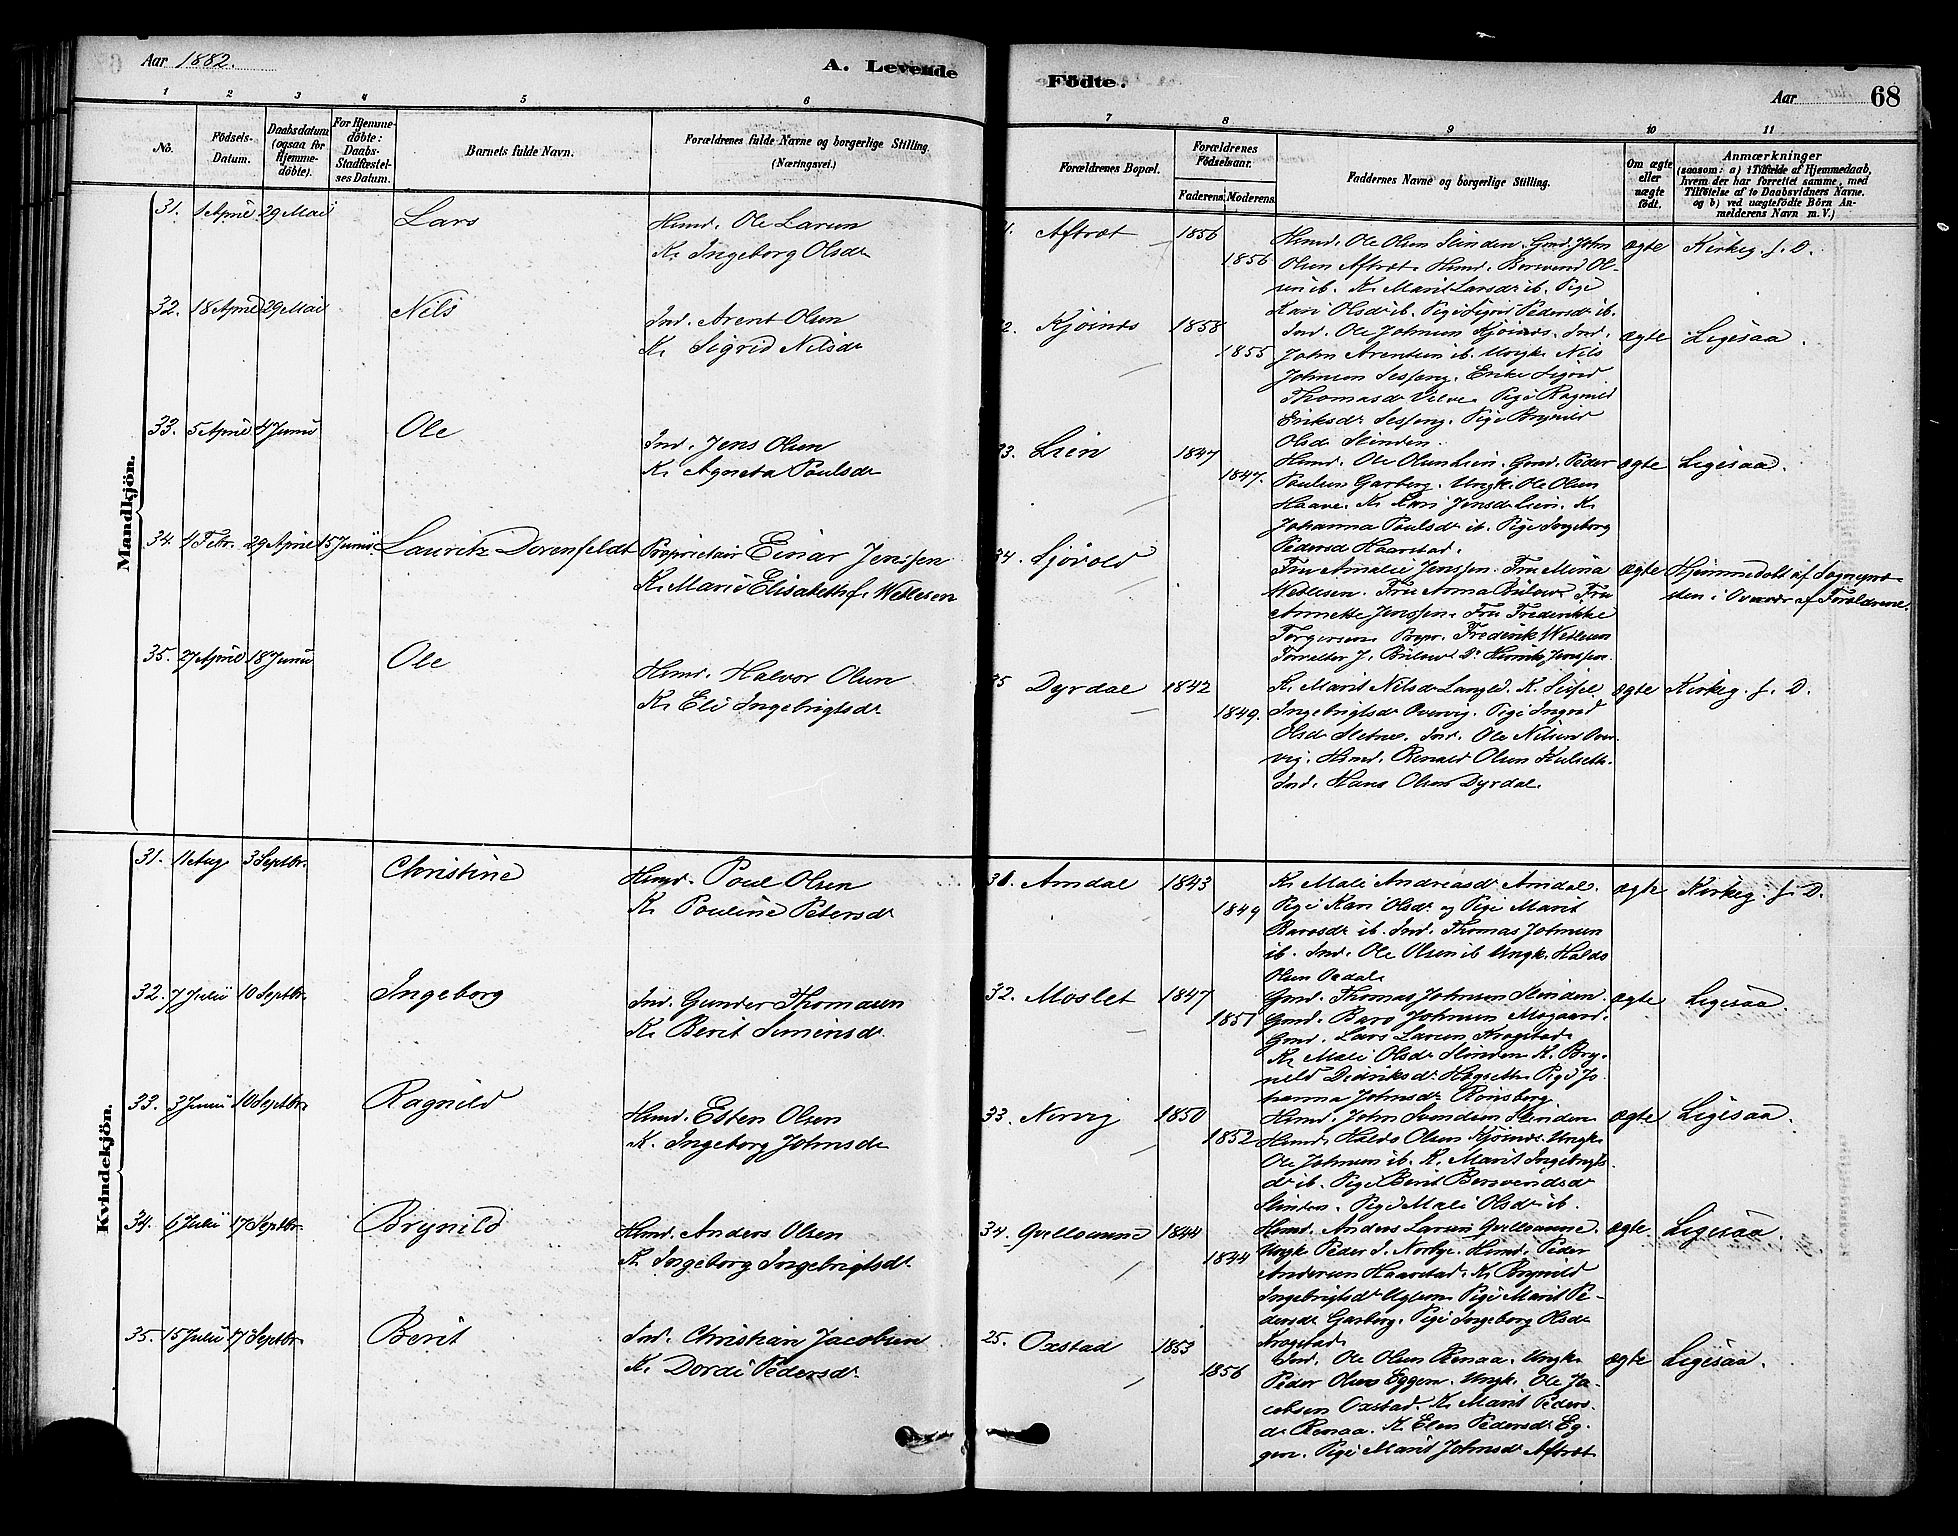 Aar 1882.
A. Levende
Födte.
Aar 68
1 2 3 4 5 6 7 8 9 10 11
No.
Födsels-
Datum.
Daabsdatum
(ogsaa for
Hjemme-
döbte).
For Hjemme-
döbte:
Daabs-
Stadfæstel-
ses Datum.
Barnets fulde Navn.
Forældrenes fulde Navne og borgerlige Stilling.
(Næringsvei.)
Forældrenes Bopæl.
Forældrenes
Fødselsaar.
Faderens. Moderens.
Faddernes Navne og borgerlige Stilling.
Om ægte
eller
uægte
födt.
Anmærkninger
(saasom: a) i Tilfælde af Hjemmedaab,
hvem der har forrettet samme, med
Tilføielse af to Daabsvidners Navne.
og b) ved uægtefödte Börn An-
melderens Navn m. V.)
Mandkjön.
31. 1 April 29 Mai Lars
Hmd. Ole Larsen
K. Ingeborg Olsdr
Aftret 1856
1856
Hmd. Ole Olsen Slinden. Gmd. John
Olsen Aftret. Hmd. Bersvend Ol-
sen ib. K. Marit Larsdr ib. Pige
Kari Olsdr ib. Pige Sigrid Pedersdr ib.
ægte Kirkeg. f. D.
32. 18 April 29 Mai Nils
Ind. Arent Olsen
K. Sigrid Nilsdr
Kjösnæs 1858
1855
Ind. Ole Johnsen Kjösnæs. Ind.
John Arentsen ib. Ungk. Nils
Johnsen Sesseng. Enke Sigrid
Thomasdr Velve. Pige Ragnild
Eriksdr Sesseng. Pige Brynild
Olsdr Slinden.
ægte Ligesaa.
33. 5 April 4 Juni Ole
Ind. Jens Olsen
K. Agneta Poulsdr
33. Lien 1847
1847.
Hmd. Ole Olsen Lien. Gmd. Peder
Poulsen Garberg. Ungk. Ole Olsen
Haave. K. Kari Jensdr Lien. K.
Johanna Poulsdr ib. Pige Ingeborg
Pedersd Haarstad.
ægte Ligesaa.
34. 4 Febr. 29 April 15 Juni Lauritz Dorenfeldt
Proprietair Einar Jenssen
K. Marie Elisabeth f. Wetlesen
34. Sjövold
Fru Amalie Jenssen. Fru Mina
Wetlesen. Fru Anna Bülow. Fru
Annette Jenssen. Fru Frederikke
Torgersen. Propr. Frederik Wetlesen
Forvalter J. Bülow. Dr. Henrik Jenssen.
ægte Hjemmedøbt af Sognepræ-
sten i Overvær af Forældrene.
35. 27 April 18 Juni Ole
Hmd. Halvor Olsen
K. Eli Ingebrigtsdr
35 Dyrdal 1842
1849.
K. Marit Nilsdr Langld. K. Sissel
Ingebrigtsdr Overvig. Pige Ingrid
Olsdr Sletne. Ind. Ole Nilsen Over-
vig. Hmd. Renald Olsen Kulseth.
Ind. Hans Olsen Dyrdal.
ægte Kirkeg. f. D.
Kvindekjön.
31. 11 Aug 3 Septbr. Christine
Hmd. Poul Olsen
K. Pouline Petersdr
31. Amdal 1843
1849
K. Mali Andreasdr Amdal.
Pige Kari Olsdr og Pige Marit
Baroedr ib. Ind. Thomas Johnsen
ib. Ind. Ole Olsen ib Ungk. Haldo
Olsen Ordal.
ægte Kirkeg. f. D.
32. 7 Julii 10 Septbr. Ingeborg
Ind. Gunder Thomasen
K. Berit Simensdr
32. Moslet 1847
1851
Gmd. Thomas Johnsen Slinden.
Gmd. Baro Johnsen Mogaard.
Gmd. Lars Larsen Krogstad.
K. Mali Olsdr Slinden. K. Bry-
nild Didriksdr Hogseth. Pige Jo-
hanna Johnsdr Rönsberg
ægte Ligesaa.
33. 3 Junii 10 Septbr. Ragnild
Hmd. Esten Olsen
K. Ingeborg Johnsdr
33. Nervig 1850
1852
Hmd. John Svendsen Slinden
Hmd. Haldo Olsen Kjösnæs. Ungk.
Ole Johnsen ib. K. Marit Ingebrigts-
dr ib. Pige Berit Bersvendsdr
Slinden. Pige Mali Olsdr ib.
ægte Ligesaa.
34. 6 Julii 17 Septbr. Brynild
Hmd. Anders Olsen
K. Ingeborg Ingebrigtsdr.
34. Qvellounne 1844
1844
Hmd. Anders Larsen Qvellounne.
Ungk Peder J. Norbye. Hmd. Peder
Andersen Haarstad. K. Brynild
Ingebrigtsdr Uglem. Pige Marit Pe-
dersdr Garberg. Pige Ingeborg Olsdr
Krogstad.
ægte. Ligesaa.
35. 15 Julii 17 Septbr. Berit
Ind. Christian Jacobsen
K. Dordi Pedersdr.
25. Oxstad 1853
1856
Ind. Ole Olsen Renaa. Ungk.
Peder Olsen Eggen. Ungk. Ole Ja-
cobsen Oxstad. K. Marit Peders-
dr Renaa. K. Elen Pedersdr Eg-
gen. Pige Marit Johnsdr Aftret
ægte Ligesaa.